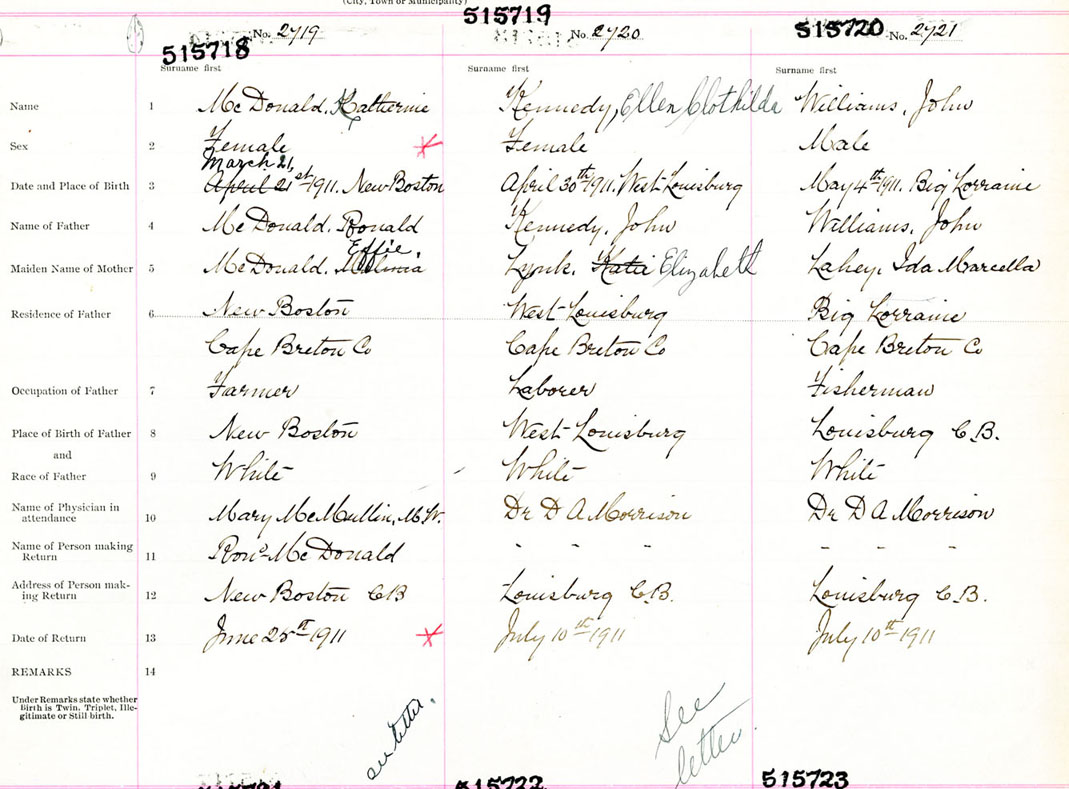 (City, Town or Municipality)
515718 No. 2719 515719 No. 2720 515720 No. 2721
Surname first Surname first Surname first
Name 1 McDonald, Katherine Kennedy, Ellen Clothilda Williams, John
Sex 2 Female Female Male
March 21,
Date and Place of Birth 3 April 21st 1911. New Boston April 30th 1911. West Louisburg May 4th 1911. Big Lorraine
Name of Father 4 McDonald, Ronald Kennedy, John Williams, John
Effie
Maiden Name of Mother 5 McDonald, Lynk, Katie Elizabeth Lahey, Ida Marcella
Residence of Father 6 New Boston West Louisburg Big Lorraine
Cape Breton Co Cape Breton Co Cape Breton Co
Occupation of Father 7 Farmer Laborer Fisherman
Place of Birth of Father 8 New Boston West Louisburg Louisburg C.B.
and
Race of Father 9 White White White
Name of Physician in
attendance 10 Mary McMullin, M.W. Dr D A Morrison Dr D A Morrison
Name of Person making
Return 11 Rond McDonald " " " " " "
Address of Person mak-
ing Return 12 New Boston CB Louisburg C.B. Louisburg C.B.
Date of Return 13 June 25th 1911 July 10th 1911 July 10th 1911
REMARKS 14
Under Remarks state whether
Birth is Twin, Triplet, Ille-
gitimate or Still birth.
see letter.
See
letter.
515722 515723